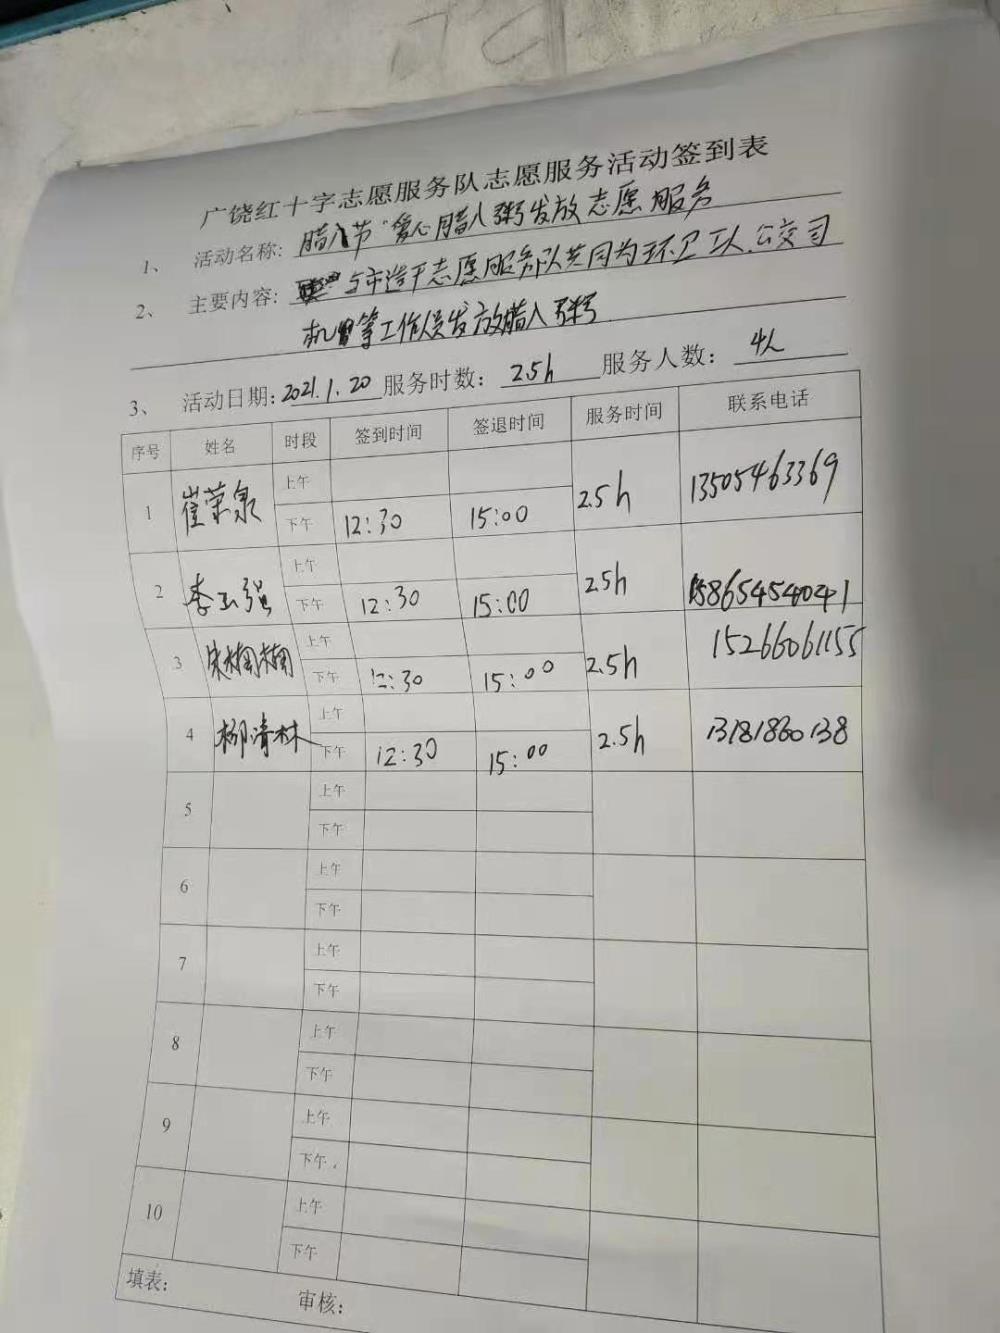 广饶红十字志愿服务队志愿服务活动签到表
1、 活动名称: 腊八节"爱心腊八粥发放志愿服务
2、 主要内容: 与市造干志愿服务队共同为环卫工人、公交司
机等工作员发放腊八粥
3、 活动日期: 2021.1.20 服务时数: 2.5h 服务人数: 4人
序号 姓名 时段 签到时间 签退时间 服务时间 联系电话
1 崔荣泉 上午 2.5h 13505463369
下午 12:30 15:00
2 李玉强 上午 2.5h 15865454041
下午 12:30 15:00
3 上午 2.5h 15266061155
下午 12:30 15:00
4 柳清林 上午 2.5h 13181860138
下午 12:30 15:00
5 上午
下午
6 上午
下午
7 上午
下午
8 上午
下午
9 上午
下午
10 上午
下午
填表: 审核: